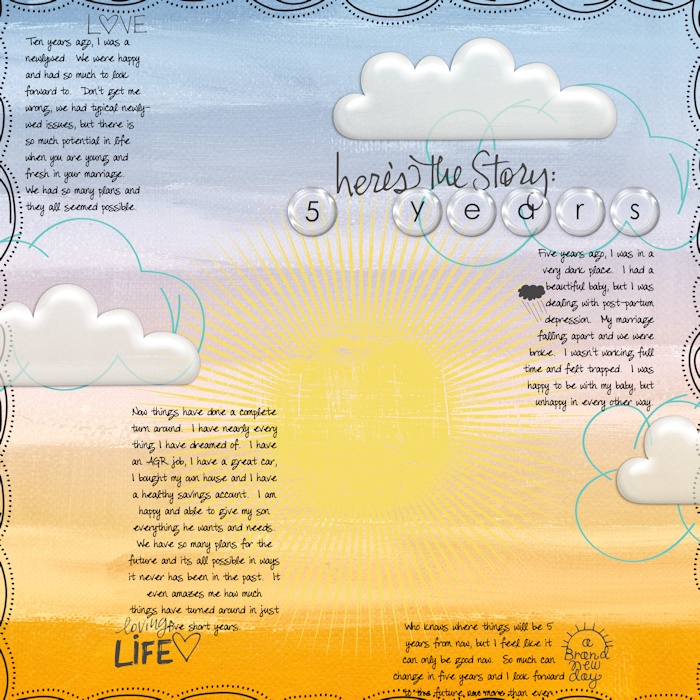 LOVE
Ten years ago, I was a
newlywed. We were happy
and had so much to look
forward to. Don't get me
wrong, we had typical newly-
wed issues, but there is
so much potential in life
when you are young and
fresh in your marriage.
We had so many plans and
they all seemed possible.
here's the Story:
5 years
Five years ago, I was in a
very dark place. I had a
beautiful baby, but I was
dealing with post-partum
depression. My marriage
falling apart and we were
broke. I wasn't working full
time and felt trapped. I was
happy to be with my baby, but
unhappy in every other way.
Now things have done a complete
turn around. I have nearly every
thing I have dreamed of. I have
an AGR job, I have a great car,
I bought my own house and I have
a healthy savings account. I am
happy and able to give my son
everything he wants and needs.
We have so many plans for the
future and its all possible in ways
it never has been in the past. It
even amazes me how much
things have turned around in just
five short years.
loving
LIFE
Who knows where things will be 5
years from now, but I feel like it
can only be good now. So much can
change in five years and I look forward
to the future, now more than ever.
a
Brand
New
day